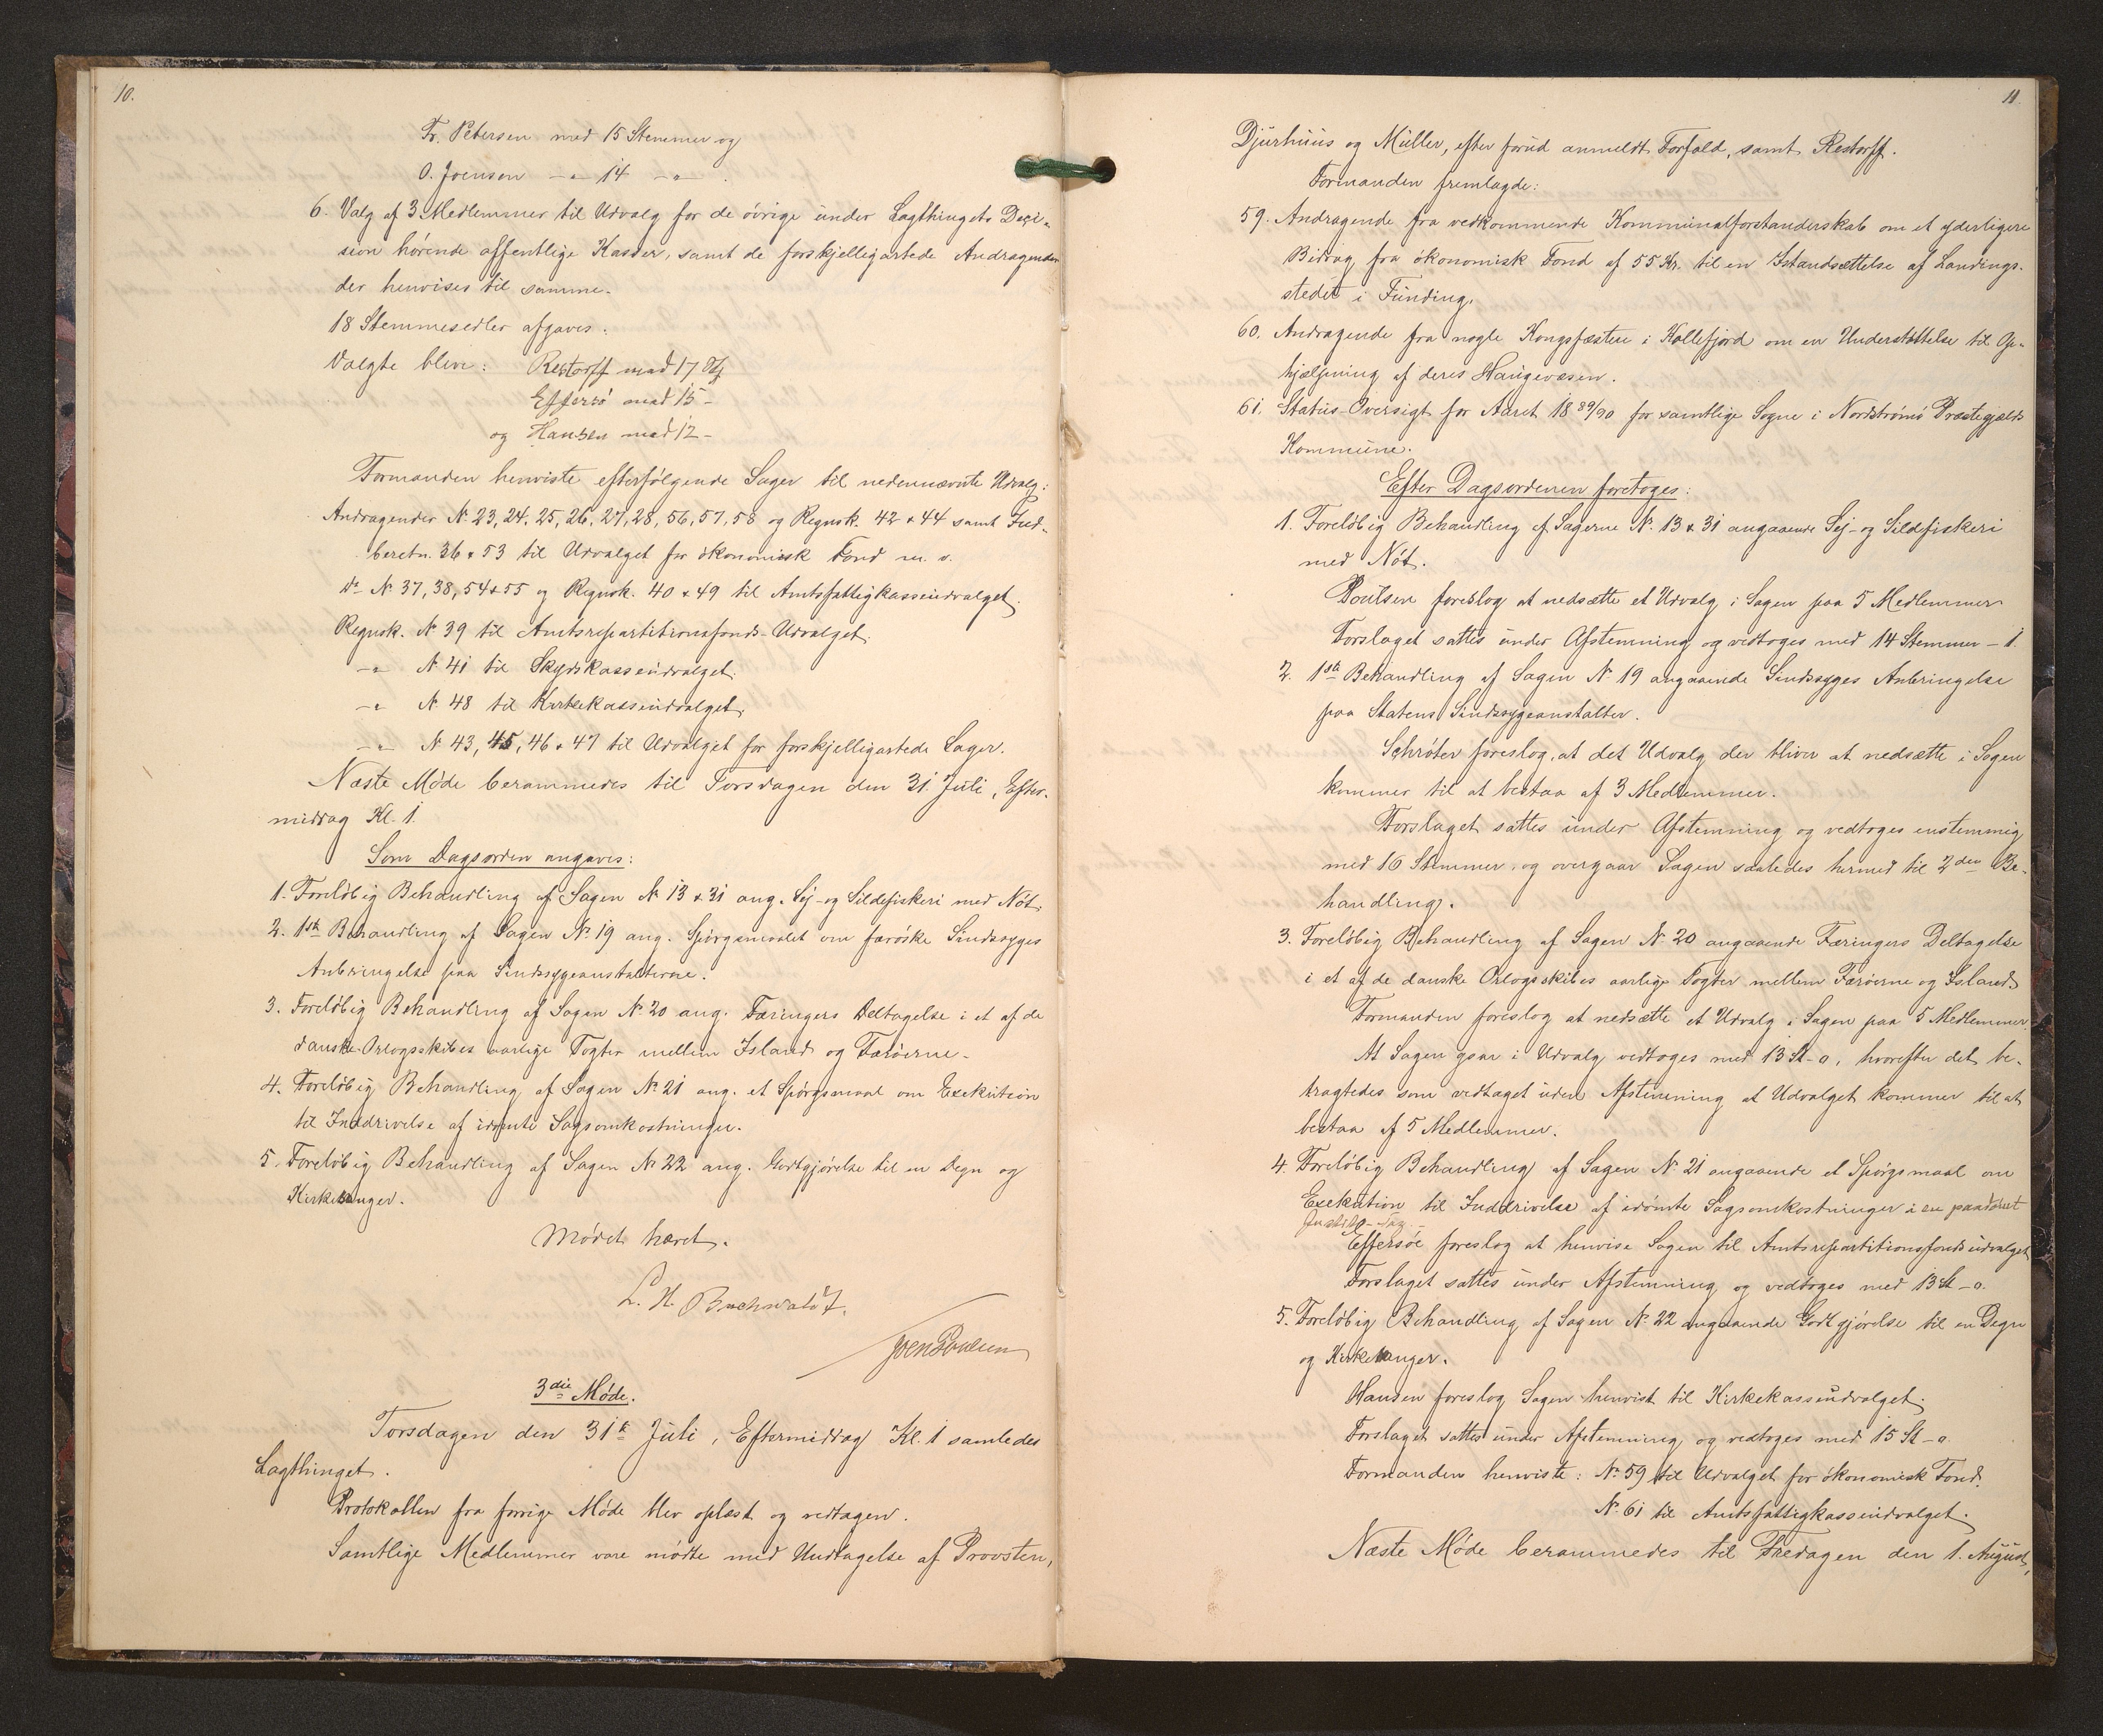 10.
Fr. Petersen med 15 Stemmer og
O. Joensen -"- 14 -"-
6. Valg af 3 Medlemmer til Udvalg for de övrige under Lagthingets Deci-
sion hörende offentlige Kasser, samt de forskjelligartede Andragender
der henvises til samme.
18 Stemmesedler afgaves.
Valgte blive: Restorff med 17 St
Effersö med 15 -
og Hansen med 12 -
Formanden henviste efterfölgende Sager til nedennævnte Udvalg:
Andragender No 23, 24, 25, 26, 27, 28, 56, 57, 58 og Regnsk. 42 & 44 samt Ind-
beretn. 36 & 53 til Udvalget for ökonomisk Fond m. v.
do No 37, 38, 54 & 55 og Regnsk. 40 & 49 til Amtsfattigkasseudvalget.
Regnsk. No 39 til Amtsrepartitionsfonds-Udvalget.
-"- No 41 til Skydskasseudvalget.
-"- No 48 til Kirkekasseudvalget.
-"- No 43, 45, 46 & 47 til Udvalget for forskjelligartede Sager.
Næste Möde berammedes til Torsdagen den 31. Juli, Efter-
middag Kl. 1.
Som Dagsorden angaves:
1. Forelöbig Behandling af Sagen No 13 & 31 ang. Sej- og Sildefiskeri med Nót.
2. 1ste Behandling af Sagen No 19 ang. Spörgsmaalet om færöske Sindssyges
Anbringelse paa Sindssygeanstalterne.
3. Forelöbig Behandling af Sagen No 20 ang. Færingers Deltagelse i et af de
danske Orlogsskibes aarlige Togter mellem Island og Færöerne.
4. Forelöbig Behandling af Sagen No 21 ang. et Spörgsmaal om Exekution
til Inddrivelse af idömte Sagsomkostninger.
5. Forelöbig Behandling af Sagen No 22 ang. Godtgjörelse til en Degn og
Kirkesanger.
Mödet hævet.
L. H. Buchwaldt.
Joen Poulsen
3die Möde.
Torsdagen den 31te Juli, Eftermiddag Kl. 1 samledes
Lagthinget.
Protokollen fra forrige Möde blev oplæst og vedtagen.
Samtlige Medlemmer vare mödte med Undtagelse af Provsten,
11.
Djurhuus og Müller, efter forud anmeldt Forfald, samt Restorff.
Formanden fremlagde:
59. Andragende fra vedkommende Kommunalforstanderskab om et yderligere
Bidrag fra ökonomisk Fond af 55 Kr. til en Istandsættelse af Landings-
stedet i Funding.
60. Andragende fra nogle Kongsfæstere i Kollefjord om en Understöttelse til Op-
hjælpning af deres Haugevæsen.
61. Status-Oversigt for Aaret 1889/90 for samtlige Sogne i Nordströmö Præstegjelds
Kommune.
Efter Dagsordenen foretoges:
1. Forelöbig Behandling af Sagerne No 13 & 31 angaaende Sej- og Sildefiskeri
med Nót.
Poulsen foreslog at nedsætte et Udvalg i Sagen paa 5 Medlemmer
Forslaget sattes under Afstemning og vedtoges med 14 Stemmer - 1.
2. 1ste Behandling af Sagen No 19 angaaende Sindssyges Anbringelse
paa Statens Sindssygeanstalter.
Schröter foreslog, at det Udvalg der bliver at nedsætte i Sagen
kommer til at bestaa af 3 Medlemmer.
Forslaget sattes under Afstemning og vedtoges enstemmig
med 16 Stemmer, og overgaar Sagen saaledes hermed til 2den Be-
handling.
3. Forelöbig Behandling af Sagen No 20 angaaende Færingers Deltagelse
i et af de danske Orlogsskibes aarlige Togter mellem Færöerne og Island.
Formanden foreslog at nedsætte et Udvalg i Sagen paa 5 Medlemmer.
At Sagen gaar i Udvalg vedtoges med 13 St - 0, hvorefter det be-
tragtedes som vedtaget uden Afstemning at Udvalget kommer til at
bestaa af 5 Medlemmer.
4. Forelöbig Behandling af Sagen No 21 angaaende et Spörgsmaal om
Exekution til Inddrivelse af idömte Sagsomkostninger i en paadömt
Justits-Sag.
Effersöe foreslog at henvise Sagen til Amtsrepartitionsfondsudvalget
Forslaget sattes under Afstemning og vedtoges med 13 St - 0.
5. Forelöbig Behandling af Sagen No 22 angaaende Godtgjörelse til en Degn
og Kirkesanger.
Hansen foreslog Sagen henvist til Kirkekasseudvalget.
Forslaget sattes under Afstemning og vedtoges med 15 St - 0
Formanden henviste: No 59 til Udvalget for ökonomisk Fond.
No 61 til Amtsfattigkasseudvalget.
Næste Möde berammedes til Fredagen den 1. August,